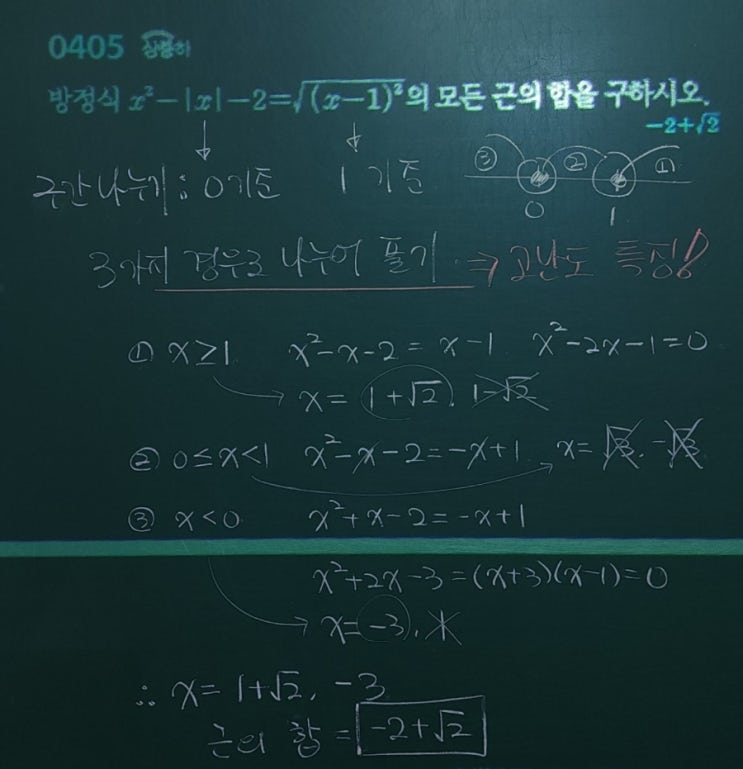 0405 상중하
방정식 x²-|x|-2=√(x-1)²의 모든 근의 합을 구하시오.
-2+√2
구간 나누기 : 0기준 1 기준
③ ② ①
0 1
3가지 경우로 나누어 풀기 ⇒ 고난도 특징!
① x≥1 x²-x-2=x-1 x²-2x-1=0
x= 1+√2, 1-√2
② 0≤x<1 x²-x-2=-x+1 x=√3, -√3
③ x<0 x²+x-2=-x+1
x²+2x-3=(x+3)(x-1)=0
x=-3, 1
∴ x=1+√2, -3
근의 합 = -2+√2